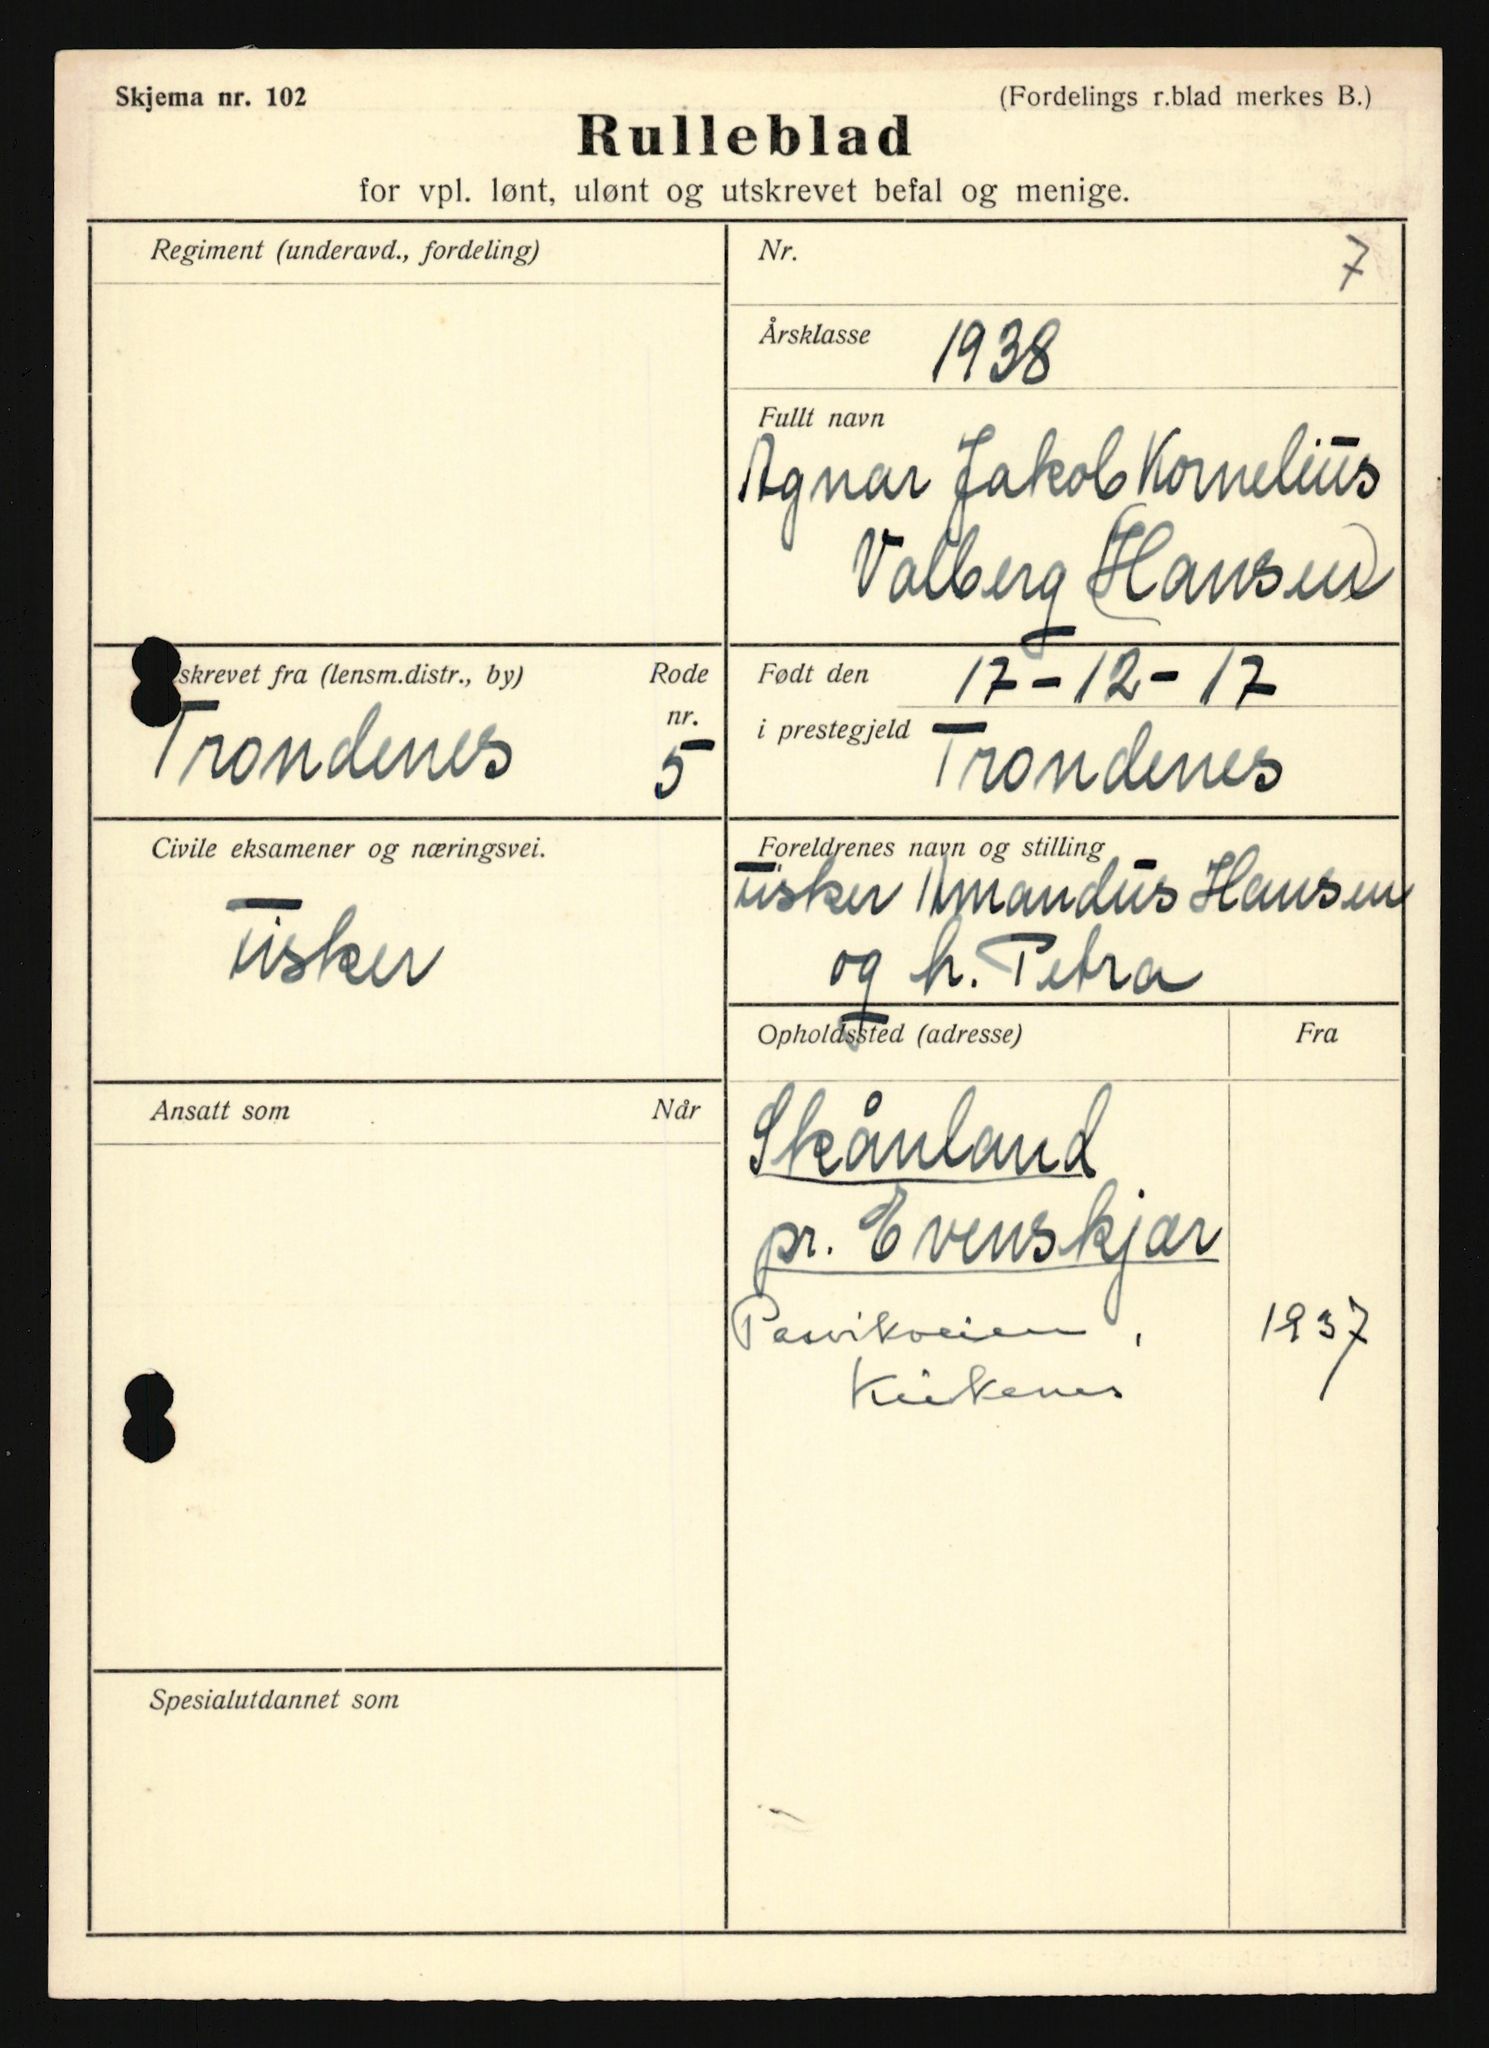 Skjema nr. 102
(Fordelings r.blad merkes B.)
Rulleblad
for vpl. lønt, ulønt og utskrevet befal og menige.
Regiment (underavd., fordeling)
Nr.
7
Årsklasse 1938
Fullt navn
Agnar Jakob Kornelius
Valberg (Hansen)
skrevet fra (lensm.distr., by)
Rode
nr.
Trondenes 5
Født den 17-12-17
i prestegjeld Trondenes
Civile eksamener og næringsvei.
Fisker
Foreldrenes navn og stilling
Fisker Amandus Hansen
og h. Petra
Opholdssted (adresse)
Fra
Skånland
pr. Evenskjær
Pasvikveien, 1937
Kirkenes
Ansatt som
Når
Spesialutdannet som